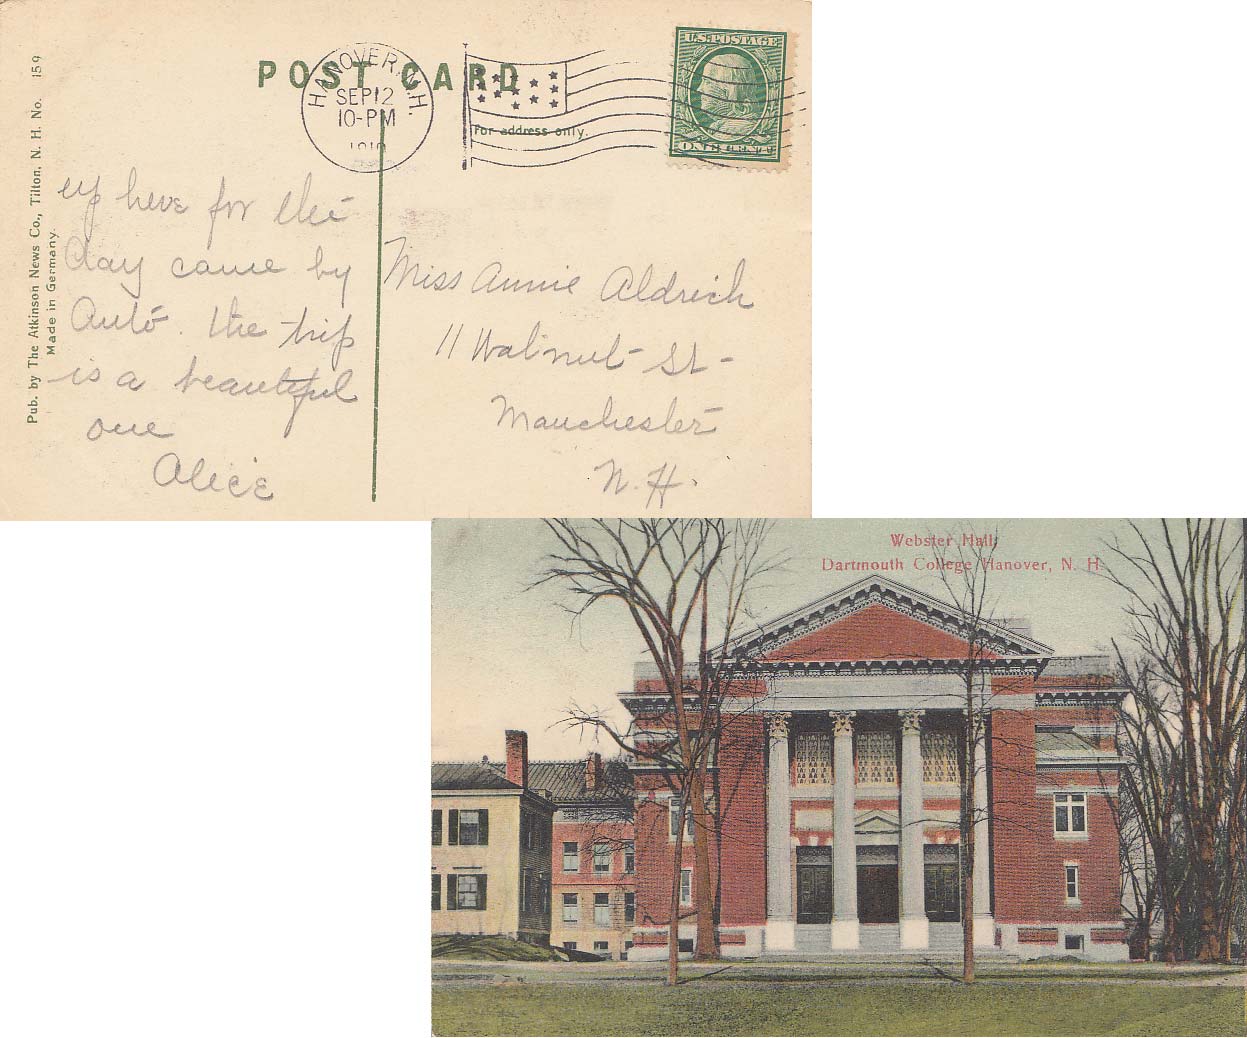 POST CARD
HANOVER, N.H.
SEP 12
10-PM
1910
For address only.
U.S. POSTAGE
ONE CENT
Pub. by The Atkinson News Co., Tilton, N. H. No. 159
Made in Germany.
up here for the
day came by
Auto. the trip
is a beautiful
one
Alice
Miss Annie Aldrich
11 Walnut St
Manchester
N.H.
Webster Hall,
Dartmouth College Hanover, N. H.